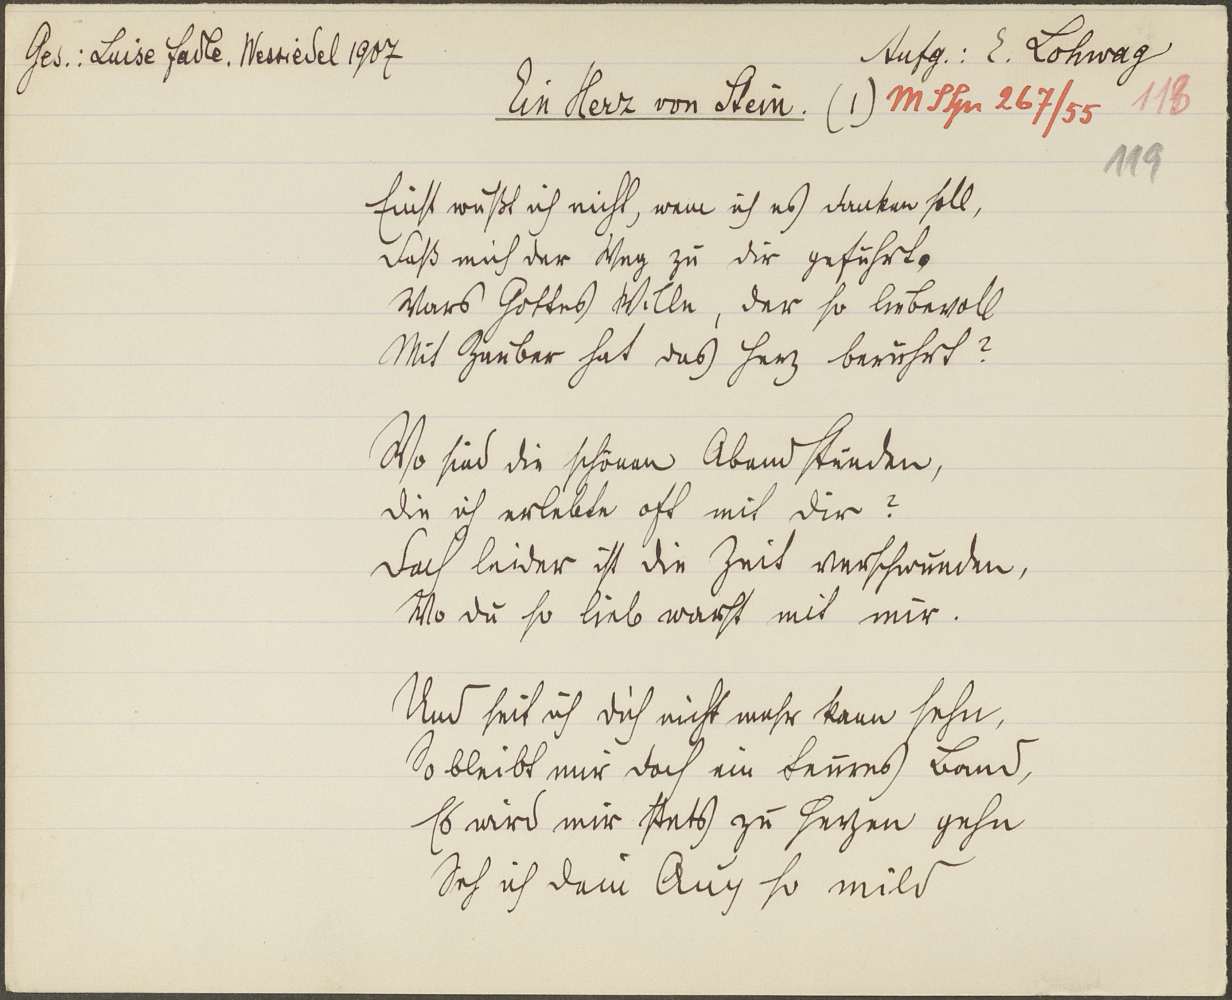 Ges.: Luise Fadle. Wessiedel 1907
Aufg.: E. Lohwag
Ein Herz von Stein. (1) 267/55 118
119
Einst wußt ich nicht, wem ich es danken soll,
Daß mich der Weg zu dir geführt.
Wars Gottes Wille, der so liebevoll
Mit Zauber hat das Herz berührt?
Wo sind die schönen Abendstunden,
Die ich erlebte oft mit dir?
Doch leider ist die Zeit verschwunden,
Wo du so lieb warst mit mir.
Und seit ich dich nicht mehr kann sehn,
So bleibt mir doch ein teures Band,
Es wird mir stets zu Herzen gehn
Seh ich dein Aug so mild